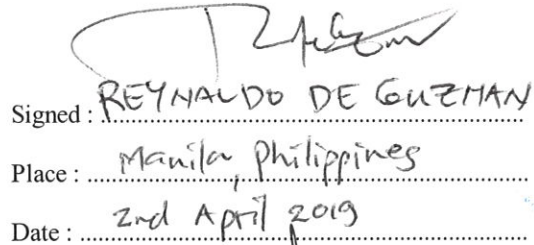 Signed : REYNALDO DE GUZMAN
Place : Manila, Philippines
Date : 2nd April 2019